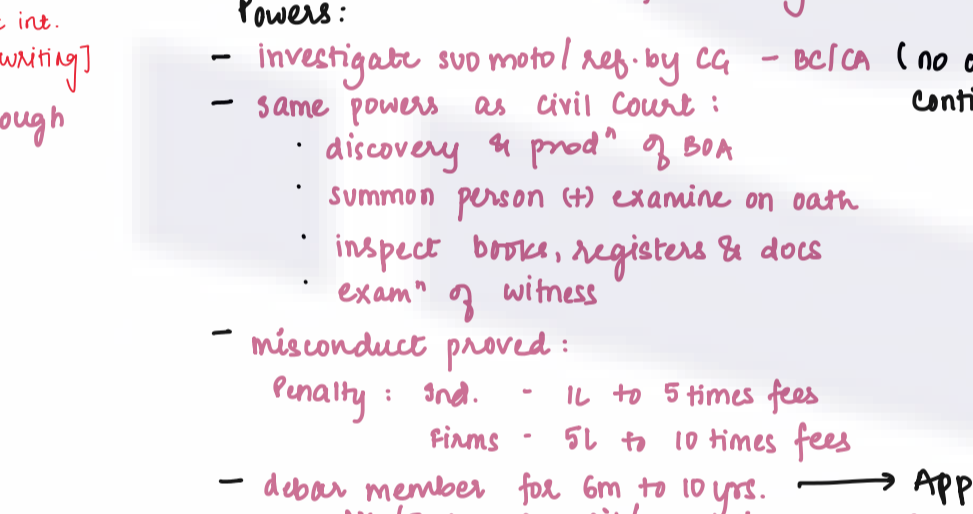 int.
Powers:
writing]
- investigate suo moto/ ref. by CG - BC/CA (no
ough
- same powers as civil Court :
conti
· discovery & prodⁿ of BOA
· summon person (+) examine on oath
· inspect books, registers & docs
· examⁿ of witness
- misconduct proved :
Penalty : Ind. - 1L to 5 times fees
Firms - 5L to 10 times fees
- debar member for 6m to 10 yrs. → App